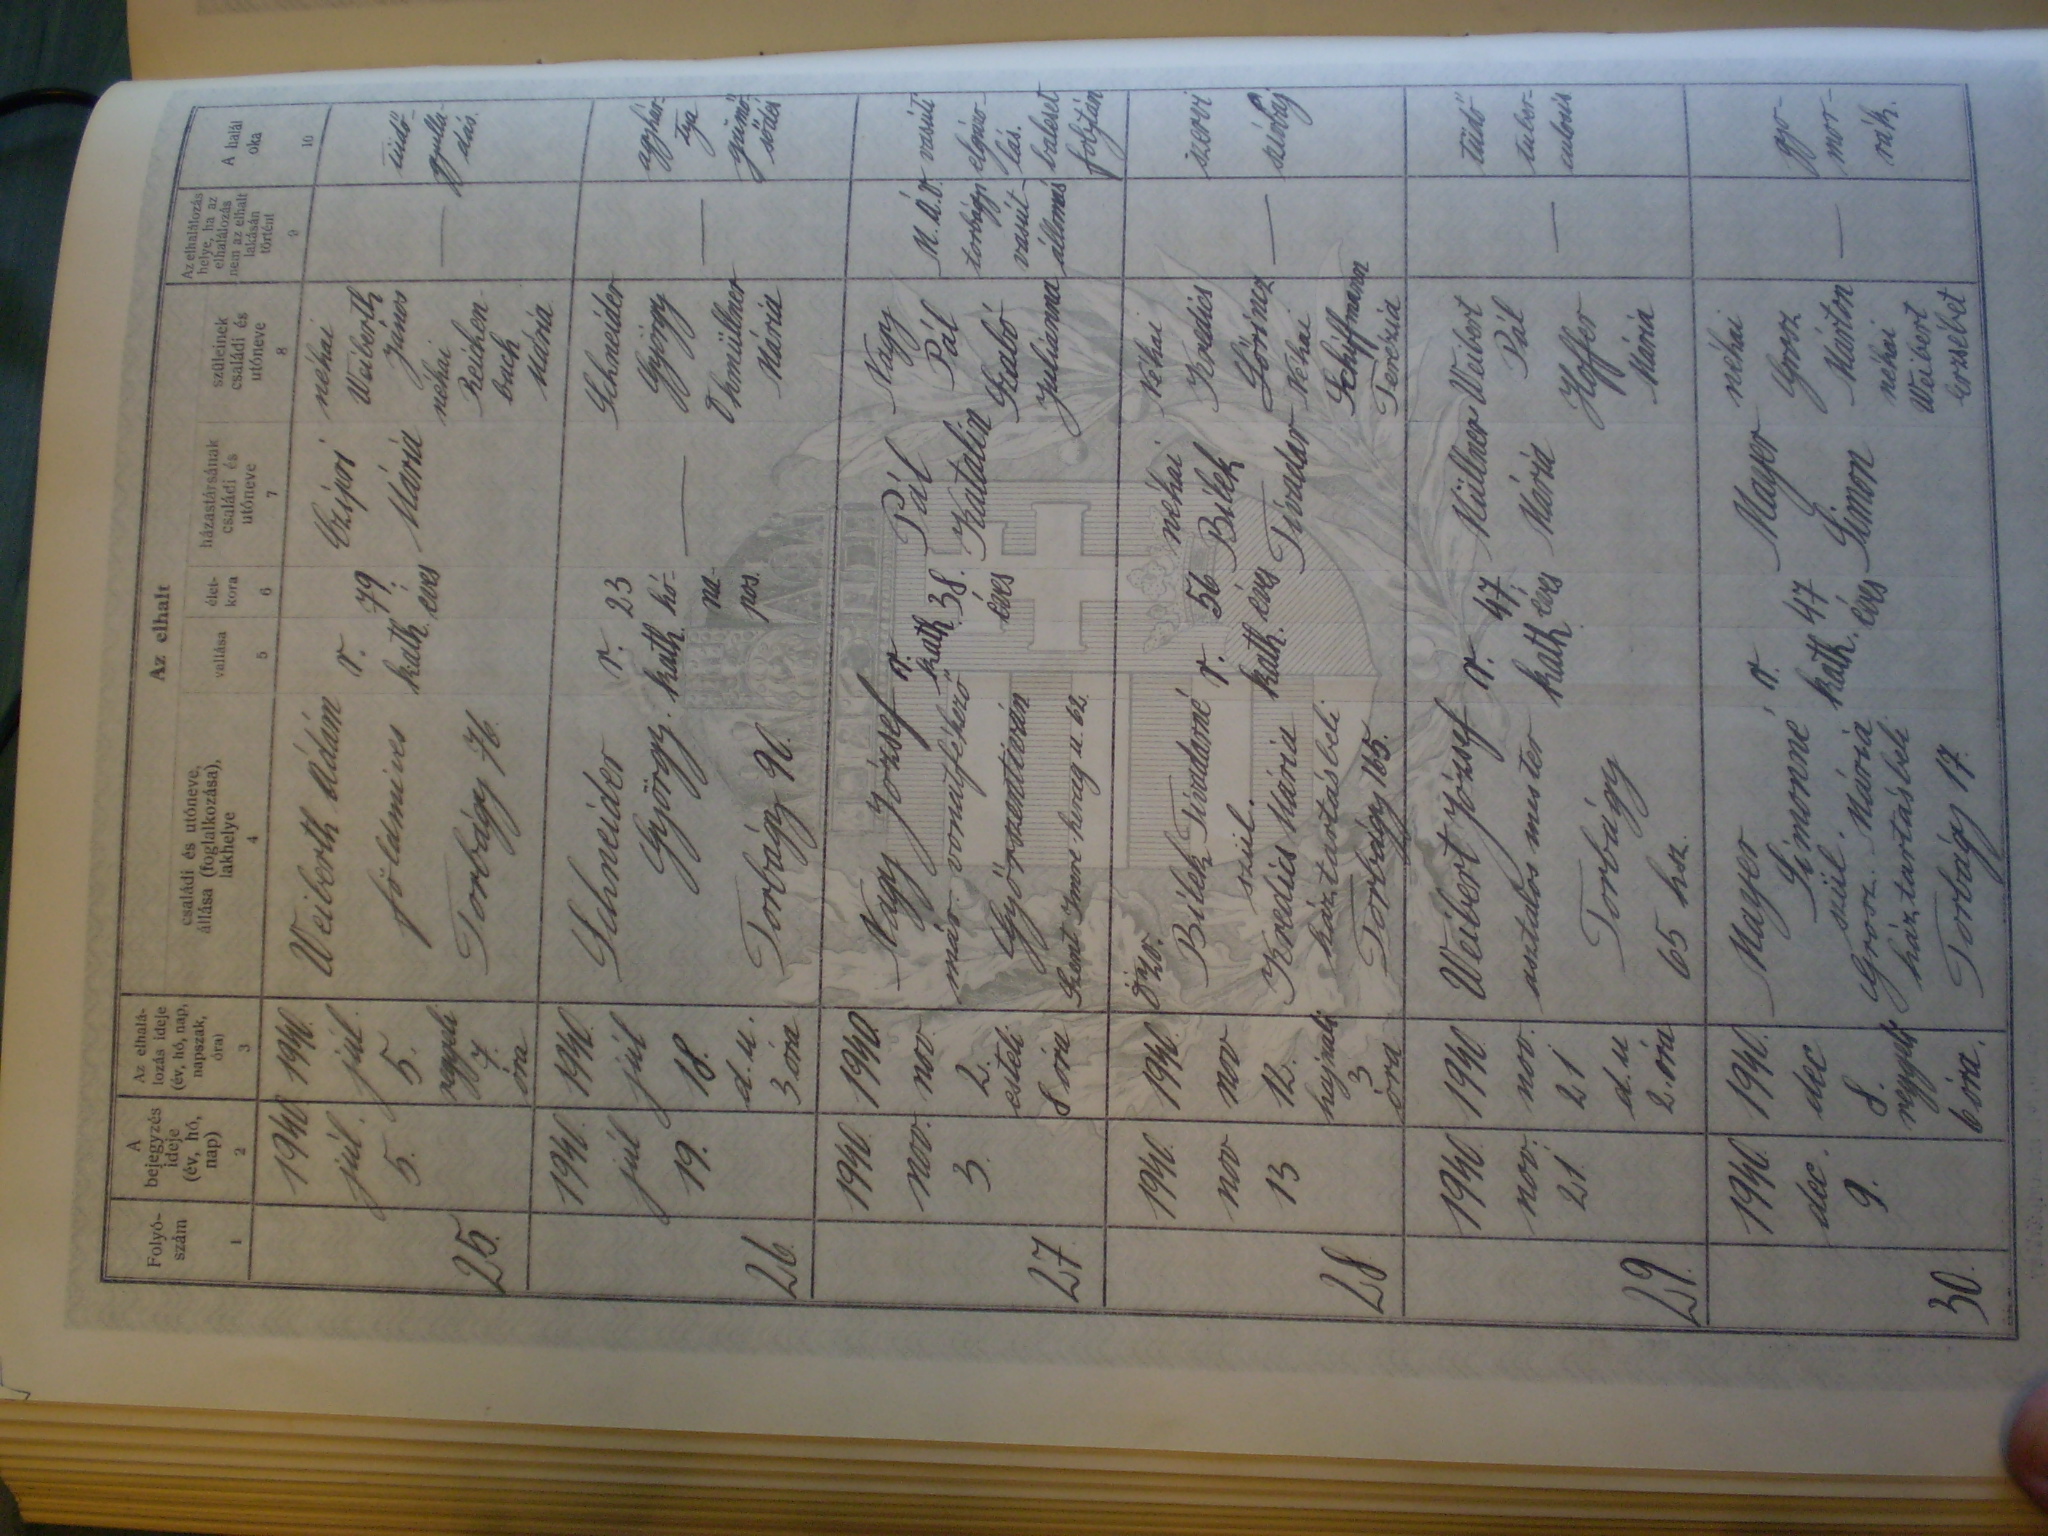 Folyó-
szám
A
bejegyzés
ideje
(év, hó,
nap)
Az elhalá-
lozás ideje
(év, hó, nap,
napszak,
óra)
Az elhalt
családi és utóneve,
állása (foglalkozása),
lakhelye
vallása
élet-
kora
házastársának
családi és
utóneve
szüleinek
családi és
utóneve
Az elhalálozás
helye, ha az
elhalálozás
nem az elhalt
lakásán
történt
A halál
oka
1
2
3
4
5
6
7
8
9
10
25.
1940
júl.
5.
1940.
júl.
5.
7.
óra
Weiberth Ádám
földmíves
Torbágy 76.
r.
kath.
79
éves
Czípri
Mária
néhai
Weiberth
János
néhai
Reichen-
bach
Mária
—
tüdő-
gyulla-
dás.
26.
1940.
júl
19.
1940.
júl
18.
d.u.
3 óra
Schneider
György.
Torbágy 90.
r.
kath.
23
hó-
na-
pos.
—
Schneider
György
Thomüllner
Mária
—
agyhár-
tya
gümő-
södés
27.
1940.
nov.
3.
1940.
nov.
2.
esteli
8 óra
Nagy József
máv. vonatfékező
Győrszentiván
Szent Imre herceg u. 62.
r.
kath
38.
éves
Pál
Katalin
Nagy
Pál
Szabó
Julianna
M.Á.V.
torbágyi
vasút-
állomás
vasúti
elgázo-
lás.
baleset
folytán
28.
1940.
nov
13
1940.
nov
12.
hajnali
3
óra
özv.
Bilek Tivadarné
szül.
Kredics Mária
háztartásbeli
Torbágy 165.
r.
kath.
56
éves
néhai
Bilek
Tivadar
Néhai
Kredics
Lőrincz
Néhai
Schiffmann
Terézia
—
szervi
szívbaj
29.
1940.
nov.
21.
1940
nov.
21
d.u
2. óra
Weibert József
asztalos mester
Torbágy
65 hsz.
r.
kath
47
éves
Müllner
Mária
Weibert
Pál
Hoffer
Mária
—
tüdő
tuber-
culosis.
30.
1940.
dec.
9.
1940.
dec
8.
6 óra.
Mayer
Simonné
szül.
Grosz Mária
háztartásbeli
Torbágy 17.
r.
kath.
47
éves
Mayer
Simon
néhai
Grosz
Márton
néhai
Weibert
Erzsébet
—
gyo-
mor-
rák.